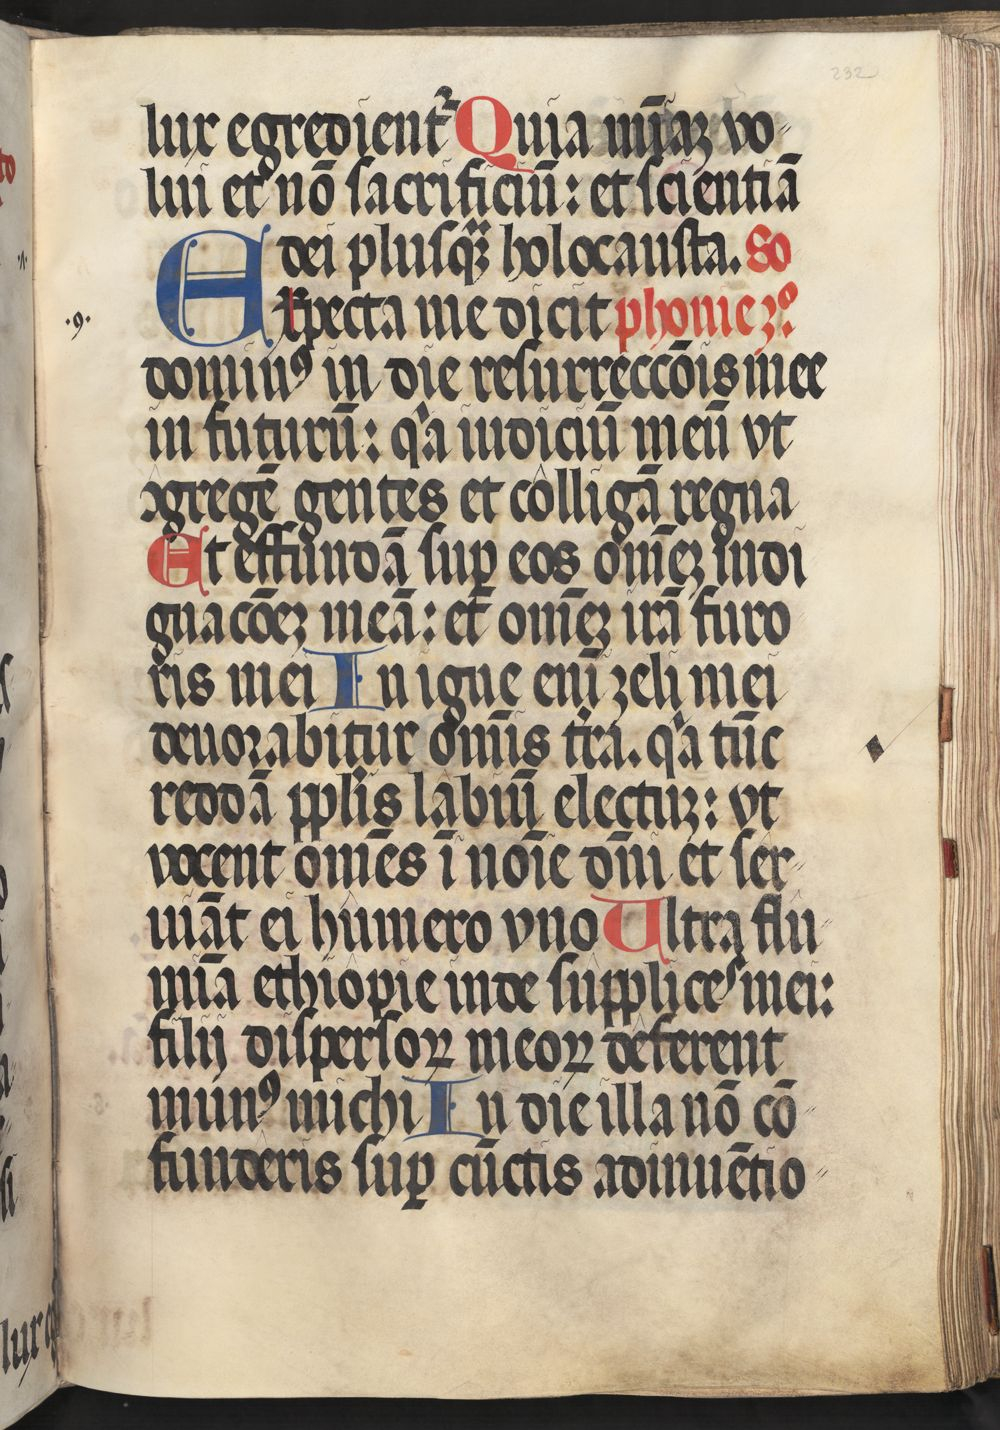 232
lux egredient᷑ Quia mi᷑am vo⸗
lui et nō sacrificiū: et scientiā
dei plusq̄ꝫ holocausta. So
Expecta me dicit phonie ꝫͦ.
·9·
dominꝰ in die resurreccōis mee
in futurū: qͣa iudiciū meū vt
ꝯgregē gentes et colligā regna
Et effundā suꝑ eos om̄eꝫ indi
gnacōeꝫ meā: et om̄eꝫ irā furo
ris mei In igne eni᷑ zeli mei
deuorabitur om̄is tr̄a. qͣa tūc
reddā ppl̄is labiū electuꝫ: vt
vocent om̄es ī noīe dn̄i et ser⸗
uiāt ei humero vno Ultra flu
mīa ethiopie inde supplices mei:
filij disꝑsoꝝ meoꝝ deferent
munꝰ michi In die illa nō cō⸗
funderis suꝑ cūctis adinuētio⸗
lux eg